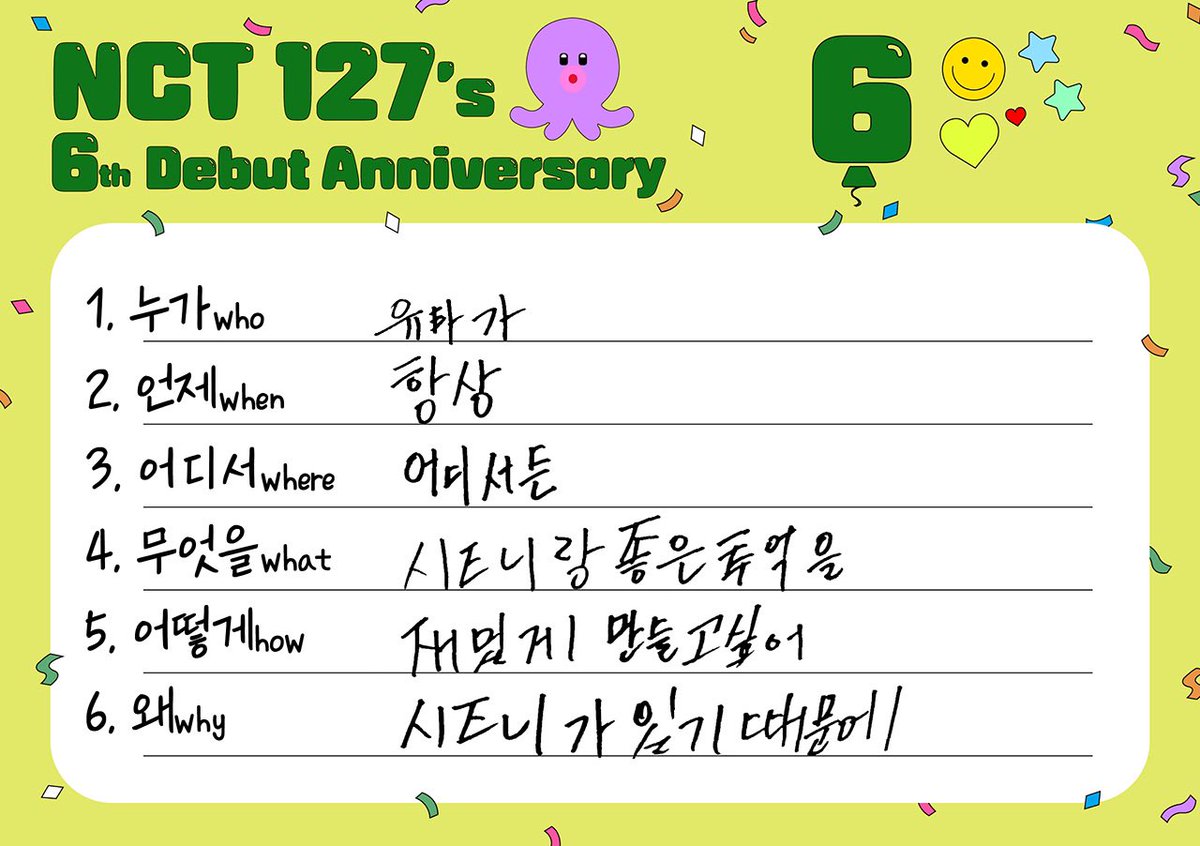 NCT 127's
6th Debut Anniversary
6
1. 누가who 유타가
2. 언제when 항상
3. 어디서where 어디서든
4. 무엇을what 시즈니랑 좋은 추억을
5. 어떻게how 재밌게 만들고싶어
6. 왜why 시즈니가 있기 때문에